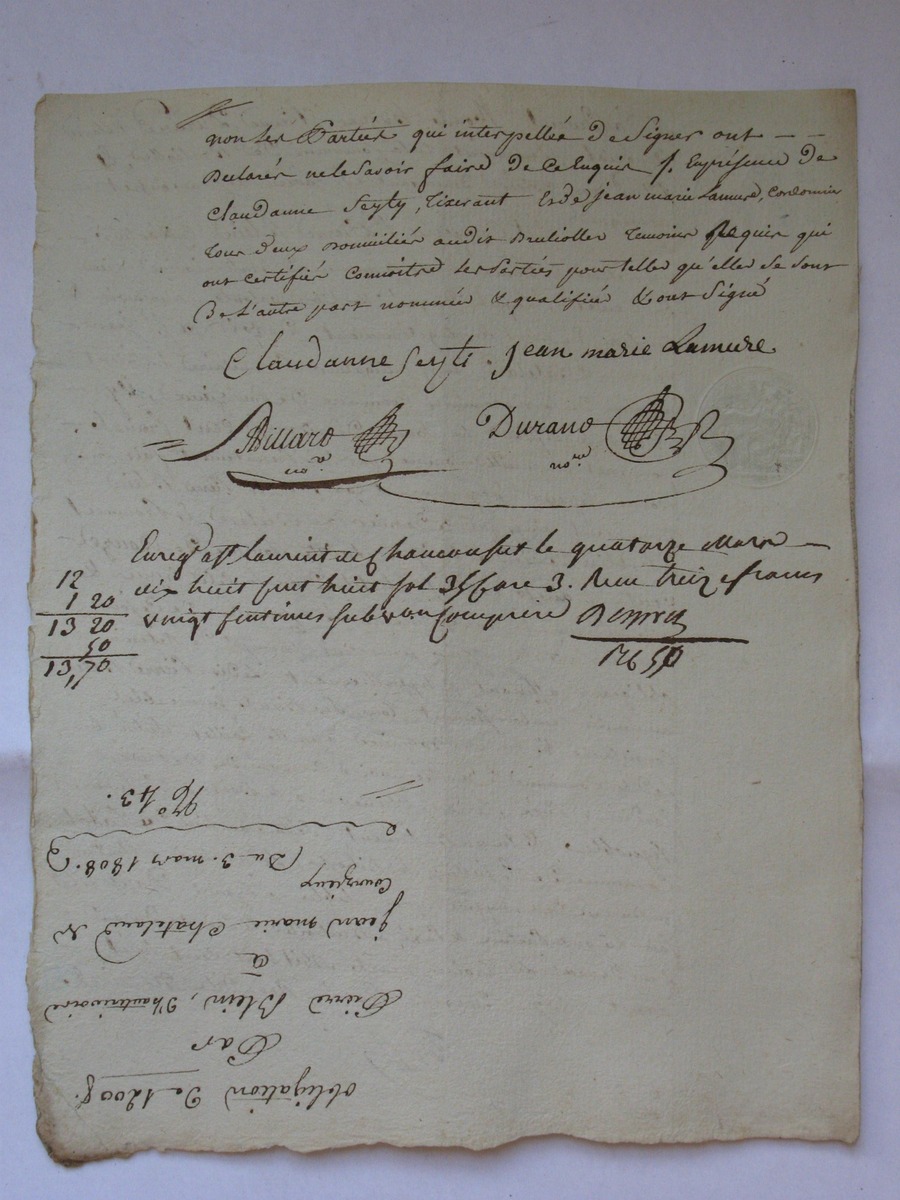 non les Parties qui interpellée de Signer ont — —
Declarés ne le Savoir faire de ce Enquis /. En présence De
Claudanne Seyty, Tixerant et de jean marie Lamure, Cordonnier
Tous deux Domiciliés audit Brulliolles Temoins Requis qui
ont certifiés Connoitre les Parties pour telles qu'elle se sont
De L'autre part nommée & qualifiée & ont Signé
Claudanne Seyti jean marie Lamure
Billard Durand
no.re no.re
Enreg.é a St laurent de Chamousset le quatorze Mars —
dix huit cent huit fol 35 Case 3. Reçu treize francs
vingt Centimes Subvon Comprise
12
1 20
13 20
50
13,70
Obligation De 1200 f.
Par
Pierre Blein, D'hauterivoire
a
jean marie Chatelard De
Courzieux
(Du 3. mars 1808.)
N.º 43.